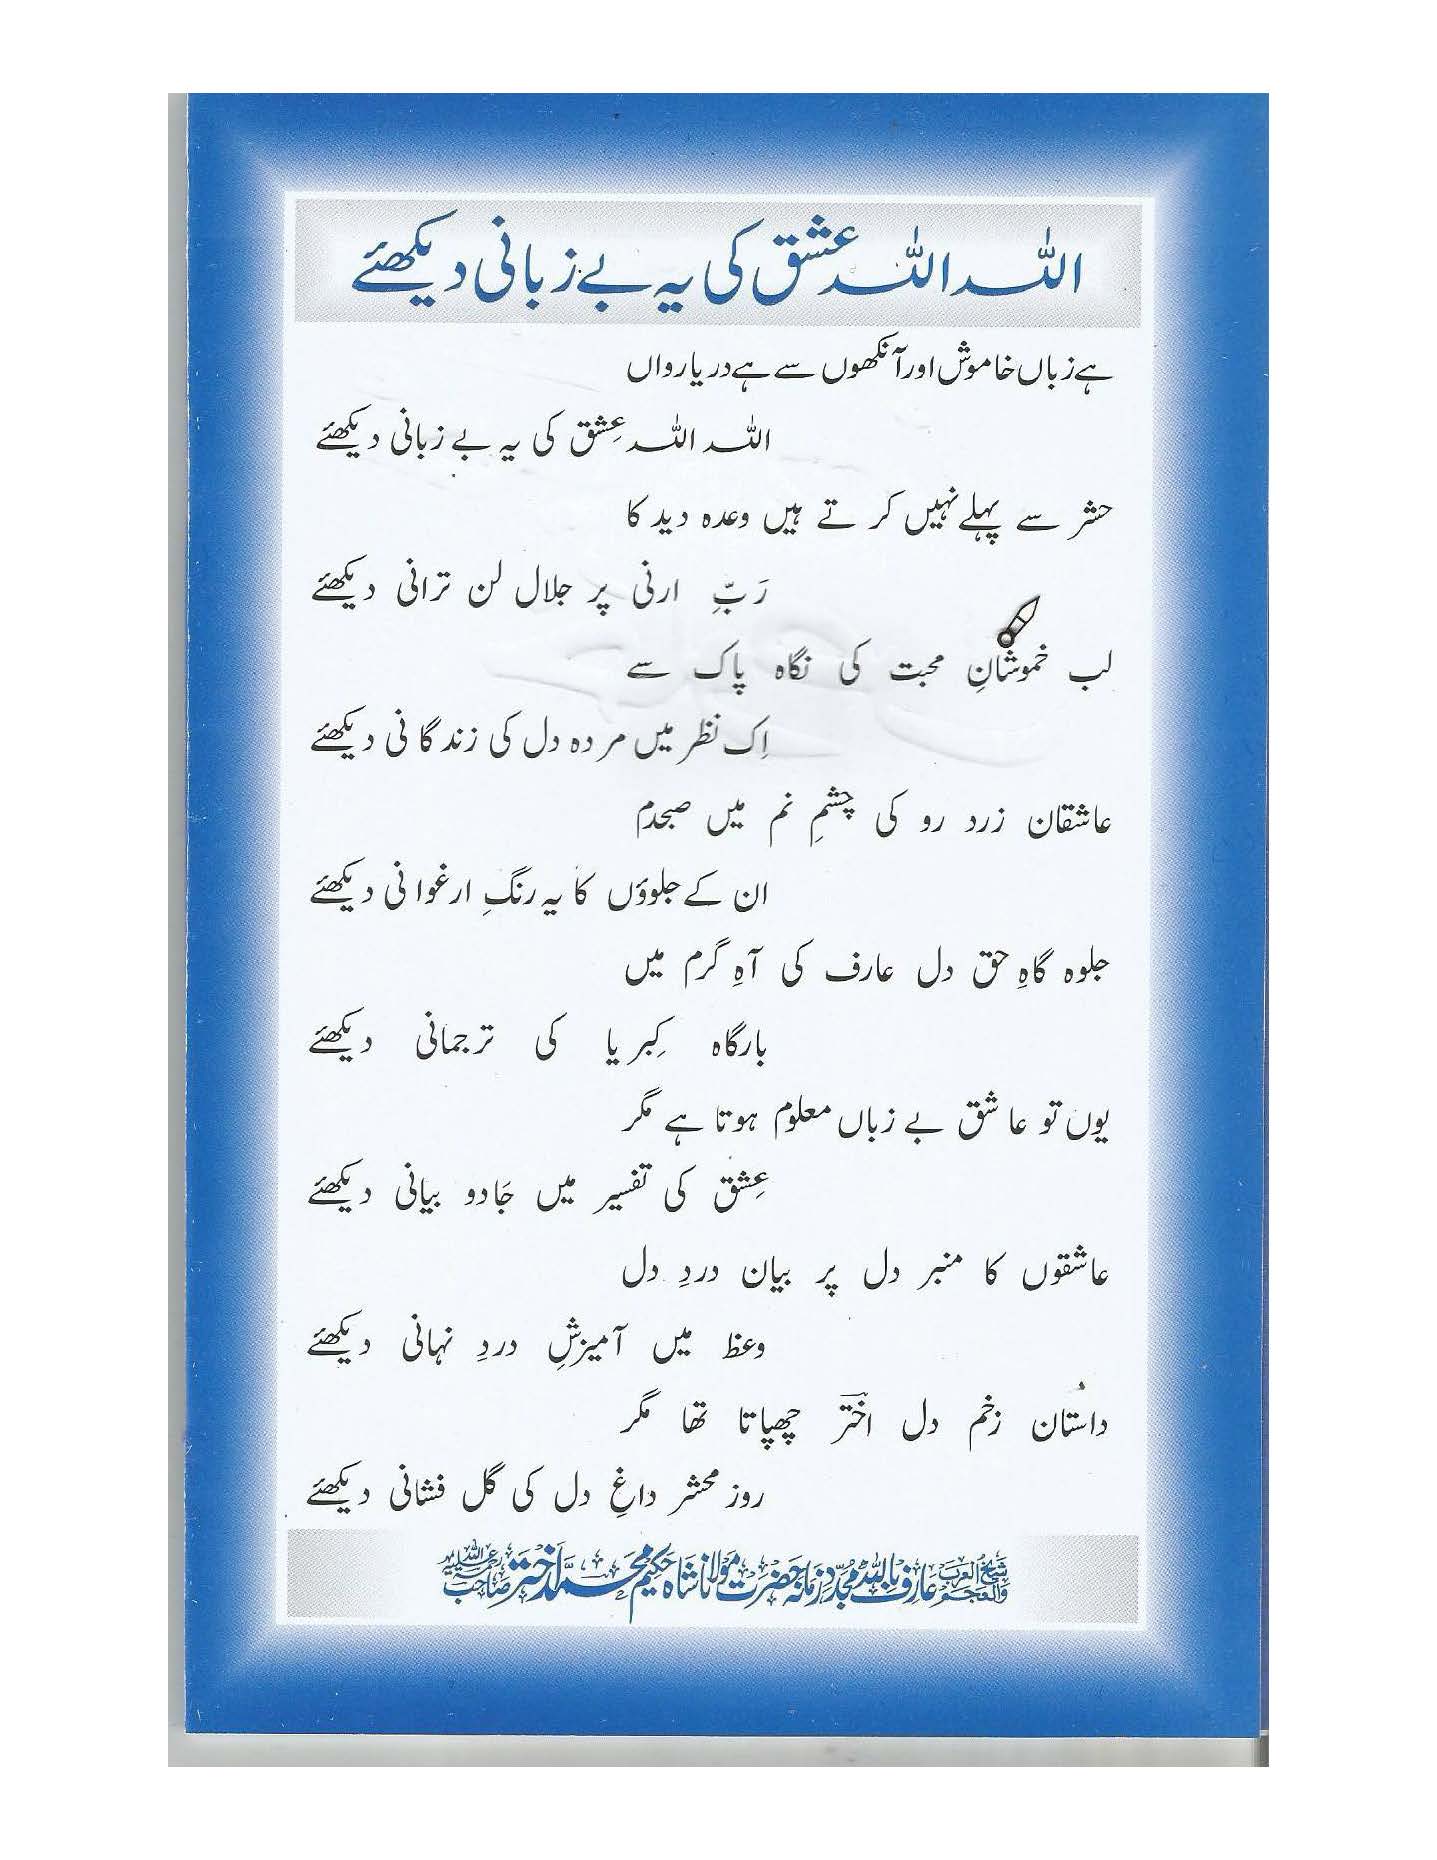 اللہ اللہ عشق کی یہ بے زبانی دیکھئے
ہے زباں خاموش اور آنکھوں سے ہے دریا رواں
اللہ اللہ عِشق کی یہ بے زبانی دیکھئے
حشر سے پہلے نہیں کرتے ہیں وعدہ دید کا
رَبِّ ارنی پر جلال لن ترانی دیکھئے
لب خموشانِ محبت کی نگاہ پاک سے
اِک نظر میں مردہ دل کی زندگانی دیکھئے
عاشقان زرد رو کی چشمِ نم میں صبحدم
ان کے جلوؤں کا یہ رنگِ ارغوانی دیکھئے
جلوہ گاہِ حق دل عارف کی آہِ گرم میں
بارگاہ کِبریا کی ترجمانی دیکھئے
یوں تو عاشق بے زباں معلوم ہوتا ہے مگر
عِشق کی تفسیر میں جَادو بیانی دیکھئے
عاشقوں کا منبر دل پر بیان دردِ دل
وعظ میں آمیزشِ دردِ نہانی دیکھئے
داستان زخم دل اخترؔ چھپاتا تھا مگر
روز محشر داغِ دل کی گل فشانی دیکھئے
شیخ العرب والعجم عارف باللہ مجدد زمانہ حضرت مولانا شاہ حکیم محمد اختر صاحب رحمۃ اللہ علیہ